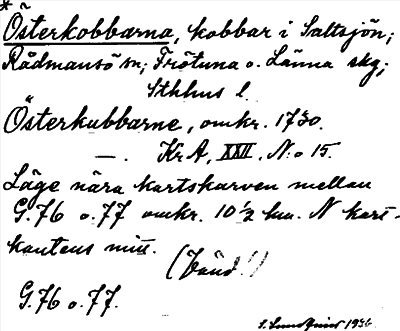 * Österkobbarna, kobbar i Saltsjön;
Rådmansö sn; Frötuna o. Länna skg;
Sthlms l.
Österkubbarne, omkr. 1730.
—. Kr A, XXII, N:o 15.
Läge nära kartskarven mellan
G.76 o. 77 omkr. 10 1/2 km. N kart-
kantens mitt.
(Vänd!)
G.76 o. 77.
1936